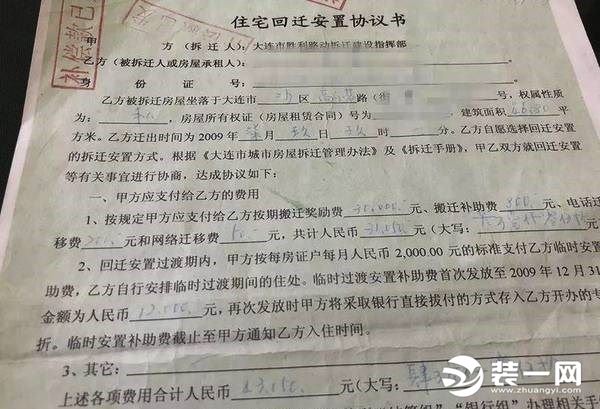 住宅回迁安置协议书
甲 方（拆迁人）：大连市胜利路动拆迁建设指挥部
乙方（被拆迁人或房屋承租人）：
身 份 证 号：
乙方被拆迁房屋坐落于大连市 沙 区 路（街 号，权属性质
为： 私 ，房屋所有权证（房屋租赁合同）号为 ，建筑面积 平
方米。乙方迁出时间为 2009 年 月 玖 日 时 分。乙方自愿选择回迁安置
的拆迁安置方式。根据《大连市城市房屋拆迁管理办法》及《拆迁手册》，甲乙双方就回迁安置
等有关事宜进行协商，达成协议如下：
一、甲方应支付给乙方的费用
1、按规定甲方应支付给乙方按期搬迁奖励费 30,000. 元、搬迁补助费 800. 元、电话迁
移费 200. 元和网络迁移费 50.- 元，共计人民币 31,050. 元（大写：
2、回迁安置过渡期内，甲方按每房证户每月人民币 2,000.00 元的标准支付乙方临时安置
助费，乙方自行安排临时过渡期间的住处。临时过渡安置补助费首次发放至 2009 年 12 月 31
金额为人民币 12,000. 元，再次发放时甲方将采取银行直接拨付的方式存入乙方开办的专
折。临时安置补助费截止至甲方通知乙方入住时间。
3、其它：
上述各项费用合计人民币 43,050. 元（大写：肆
办理相关手
补偿款已
装一网
www.zhuangyi.com